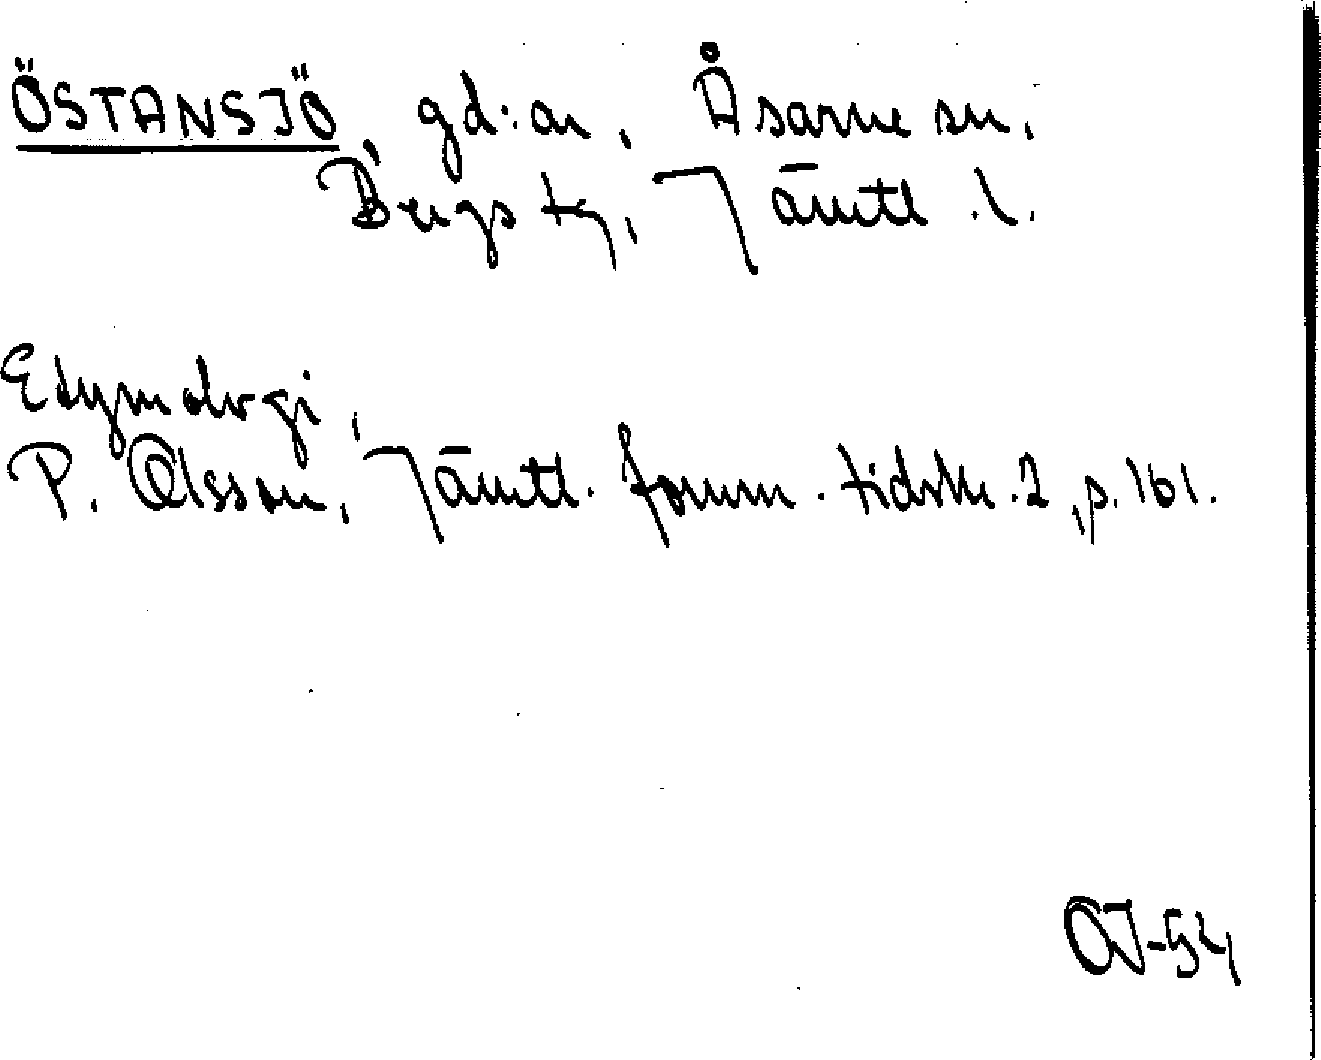 ÖSTANSJÖ, gd:ar, Åsarne sn,
Bergs tg, Jämtl. l.
Etymologi,
P. Olsson, Jämtl. fornm. tidskr. 2, p. 161.
OJ-54